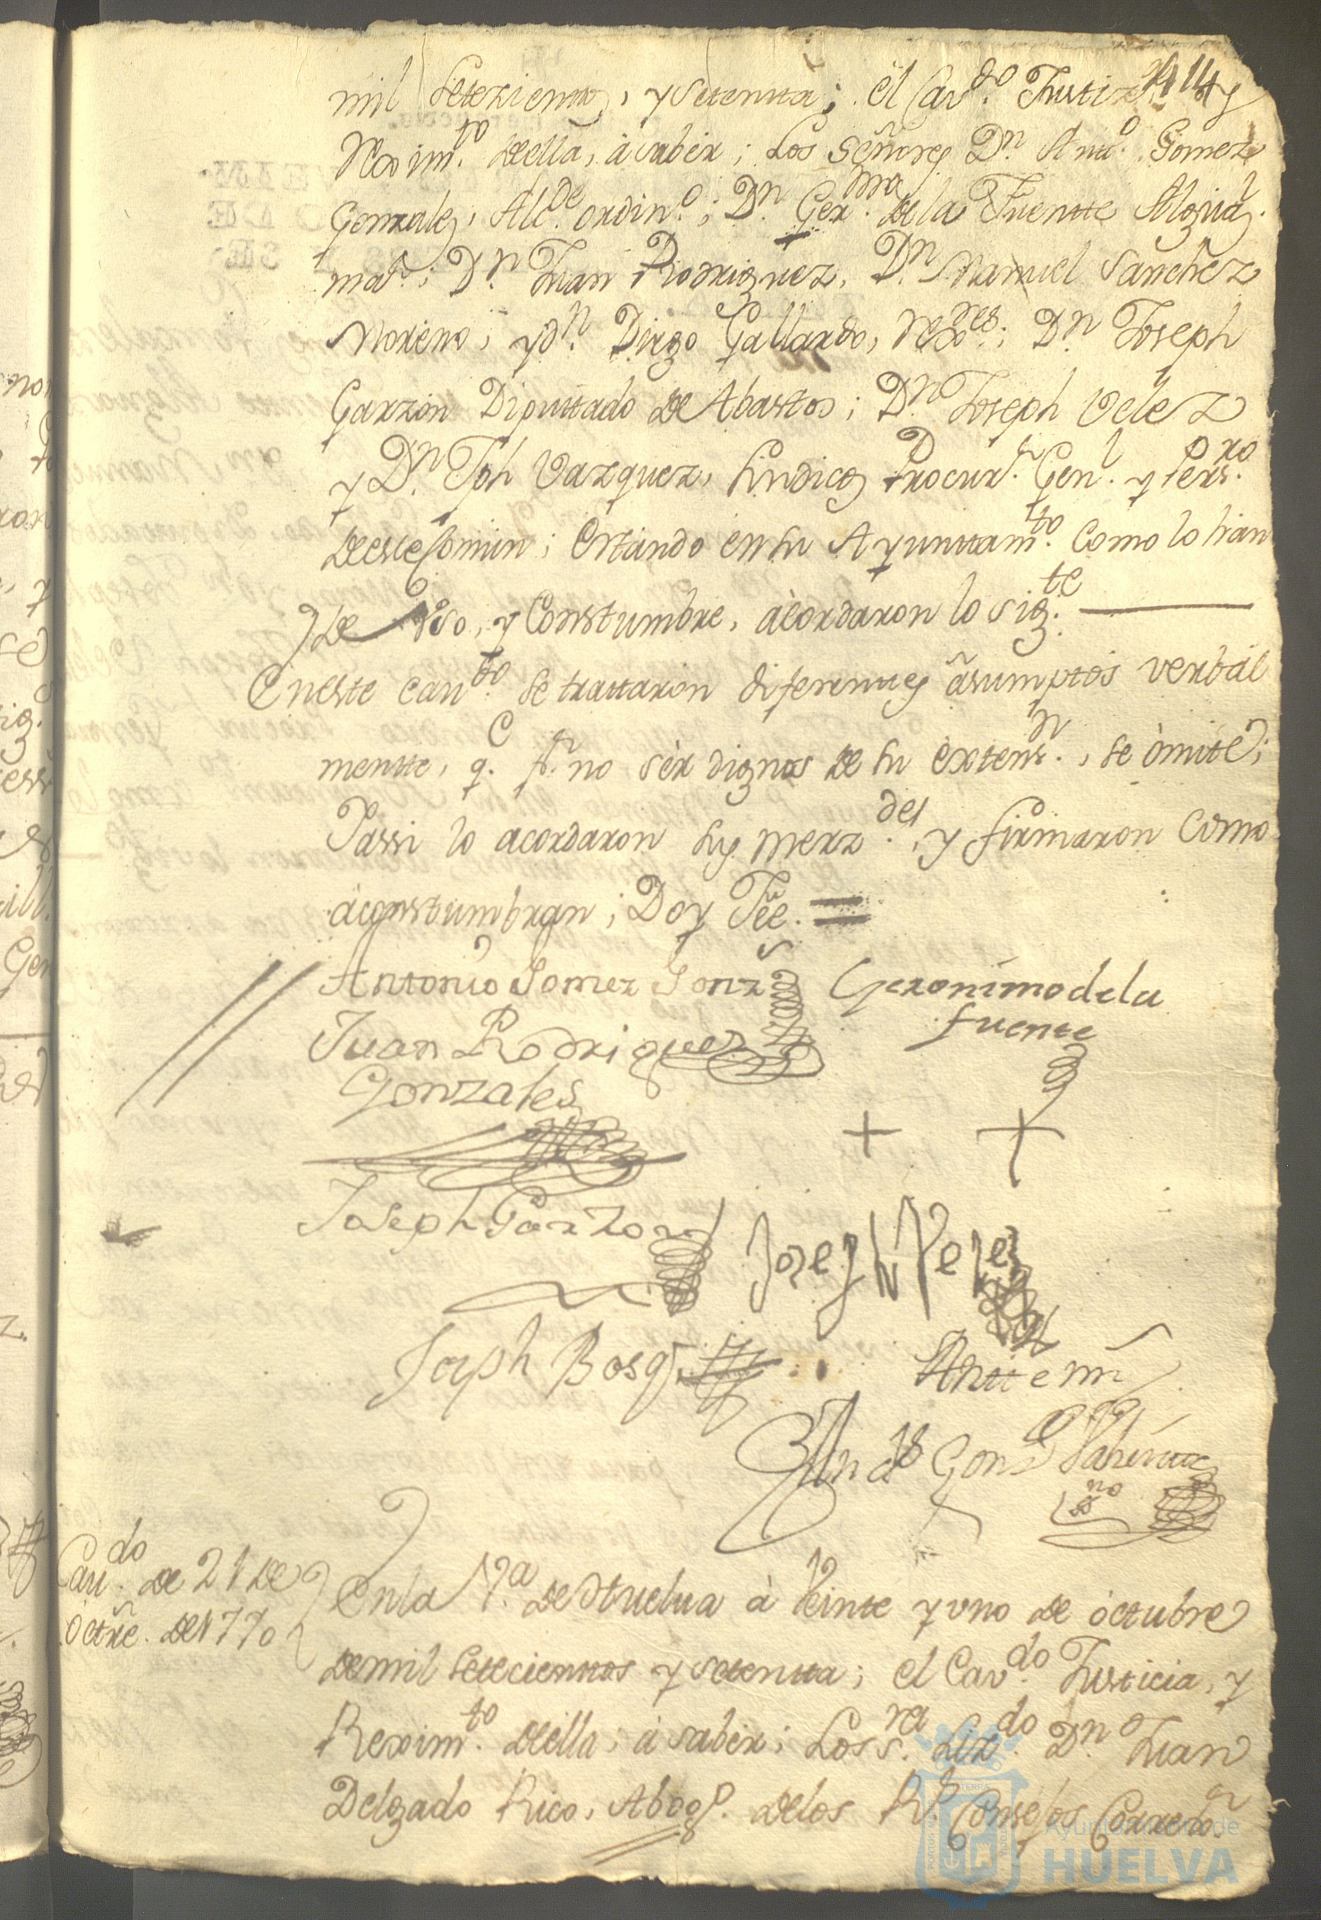 414
mil Seteziento, y setentta; el Cavdo. Justizia, y
Reximto. della, à saber; Los Señores Dn. Anto. Gomez
Gonzalez, Alcde. ordino.; Dn. Germo. de la Fuentte Alguazl.
mar.; Dn. Juan Rodriguez, Dn. Manuel Sanchez
Moreno, y dn. Diego Gallardo, Rexres.; Dn. Joseph
Garzon Diputtado de Abastos; Dn. Joseph Velez
y Dn. Jph Vazquez, Sindicos Procurr. Genl. y Persro.
de este Comun; Estando en su Ayunttamto. Como lo han
de Uso, y Constumbre, acordaron lo sigte.
En este cavdo. se trattaron diferenttes àsumptos verbal
mentte, q. pr. no sèr dignos de su èxtensn., se òmite;
Y assi lo acordaron sus merzdes., y firmaron Como
àconstumbran; Doy Fèe. =
Antonio Gomez Gonzs
Geronimo de la
fuente
Juan Rodriguez
Gonzales
+ +
Joseph Garzon
Joseph Velez
Joseph Basq
Antte mi
Gons
no
Cavdo. de 21 de
òctre. de 1770
En la Va. de Huelua à Veinte y uno de òctubre
de mil Setecienttos y setentta; el Cavdo. Justicia, y
Reximto. della, à saber; Los sres. Lizdo. Dn. Juan
Delgado Rico, Abogo. de los Rs. Consejos Corredor.
Ayuntamiento de
HUELVA